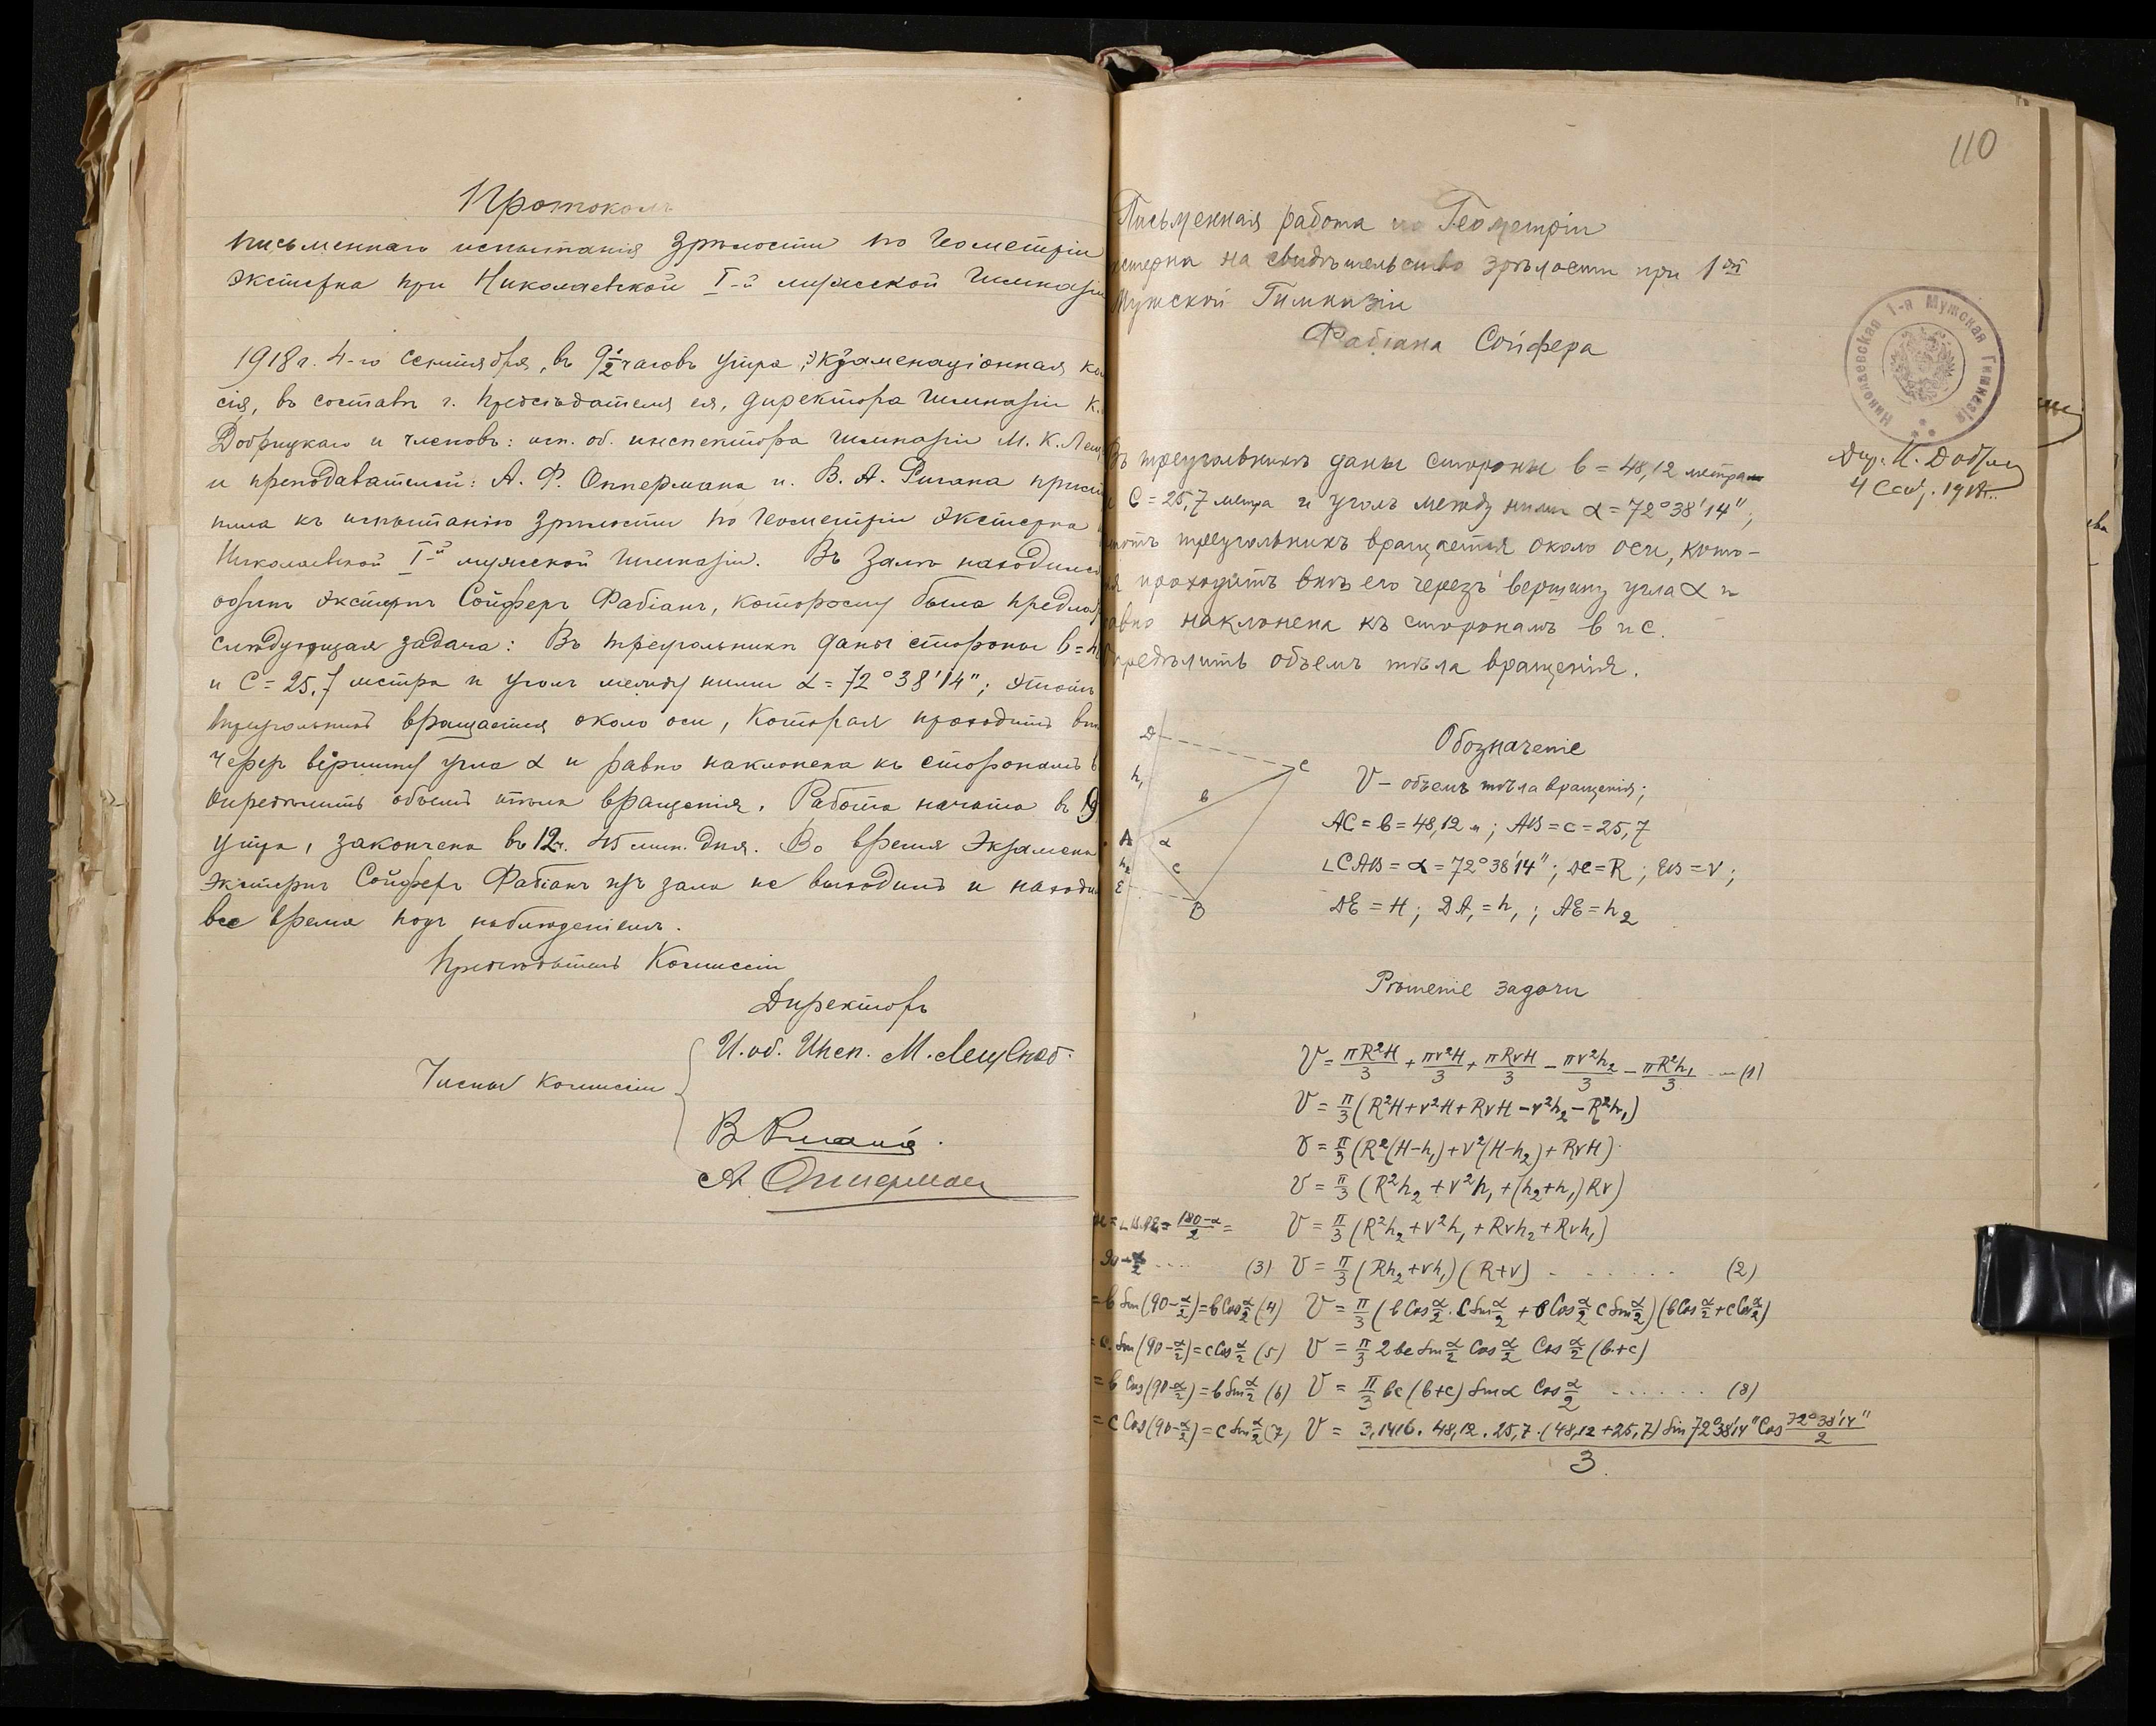 Протоколъ
письменнаго испытанія зрѣлости по геометріи
экстерна при Николаевской I-й мужской гимназіи
1918 г. 4-го сентября, въ 9½ часовъ утра, экзаменаціонная ко
сія, въ составѣ г. предсѣдателя ея, директора гимназіи К.
Добрицкаго и членовъ: исп. об. инспектора гимназіи М. К. Лещ
и преподавателей: А. Ф. Оппермана и В. А. Ригана присту
пила къ испытанію зрѣлости по геометріи экстерна
Николаевской I-й мужской гимназіи. Въ залѣ находился
одинъ экстернъ Сойферъ Фабіанъ, которому была предло
слѣдующая задача: Въ треугольникѣ даны стороны b = 4
и C = 25,7 метра и уголъ между ними α = 72°38'14"; этотъ
треугольникъ вращается около оси, которая проходитъ внѣ
черезъ вершину угла α и равно наклонена къ сторонамъ b
Опредѣлить объемъ тѣла вращенія. Работа начата въ 9
утра, закончена въ 12 ч. 45 мин. дня. Во время экзамена
экстернъ Сойферъ Фабіанъ изъ зала не выходилъ и находи
все время подъ наблюденіемъ.
Предсѣдатель Комиссіи
Директоръ
И. об. Инсп. М. Лещенко
Члены комиссіи
В Риганъ.
А. Опперман
110
Письменная работа по Геометріи
кстерна на свидѣтельство зрѣлости при 1ой
Мужской Гимназіи
Фабіана Сойфера
Николаевская 1-я Мужская Гимназія
Дир. К. Добри
4 Сент. 1918 г.
Въ треугольникѣ даны стороны b = 48,12 метра
и C = 25,7 метра и уголъ между ними α = 72°38'14";
тотъ треугольникъ вращается около оси, кото-
ая проходитъ внѣ его черезъ вершину угла α и
авно наклонена къ сторонамъ b и c.
Опредѣлить объемъ тѣла вращенія.
D
C
h₁
b
A
α
h₂
c
E
B
Обозначеніе
V — объемъ тѣла вращенія;
AC = b = 48,12 м; AB = c = 25,7
∠CAB = α = 72°38'14"; DC = R; EB = r;
DE = H; DA, = h₁; AE = h₂
Рѣшеніе задачи
V = πR²H/3 + πr²H/3 + πRrH/3 − πr²h₂/3 − πR²h₁/3 ... (1)
V = π/3 (R²H + r²H + RrH − r²h₂ − R²h₁)
V = π/3 (R²(H − h₁) + r²(H − h₂) + RrH)
V = π/3 (R²h₂ + r²h₁ + (h₂ + h₁)Rr)
= 180−α/2 = V = π/3 (R²h₂ + r²h₁ + Rrh₂ + Rrh₁)
90 − α/2 .... (3) V = π/3 (Rh₂ + rh₁)(R + r) ....... (2)
= b Sin(90 − α/2) = b Cos α/2 (4) V = π/3 (b Cos α/2 · c Sin α/2 + b Cos α/2 c Sin α/2)(b Cos α/2 + c Cos α/2)
= c. Sin(90 − α/2) = c Cos α/2 (5) V = π/3 2bc Sin α/2 Cos α/2 Cos α/2 (b + c)
= b Cos(90 − α/2) = b Sin α/2 (6) V = π/3 bc (b + c) Sin α Cos α/2 ...... (8)
= c Cos(90 − α/2) = c Sin α/2 (7) V = 3,1416 . 48,12 . 25,7 . (48,12 + 25,7) Sin 72°38'14" Cos 72°38'14"/2
3